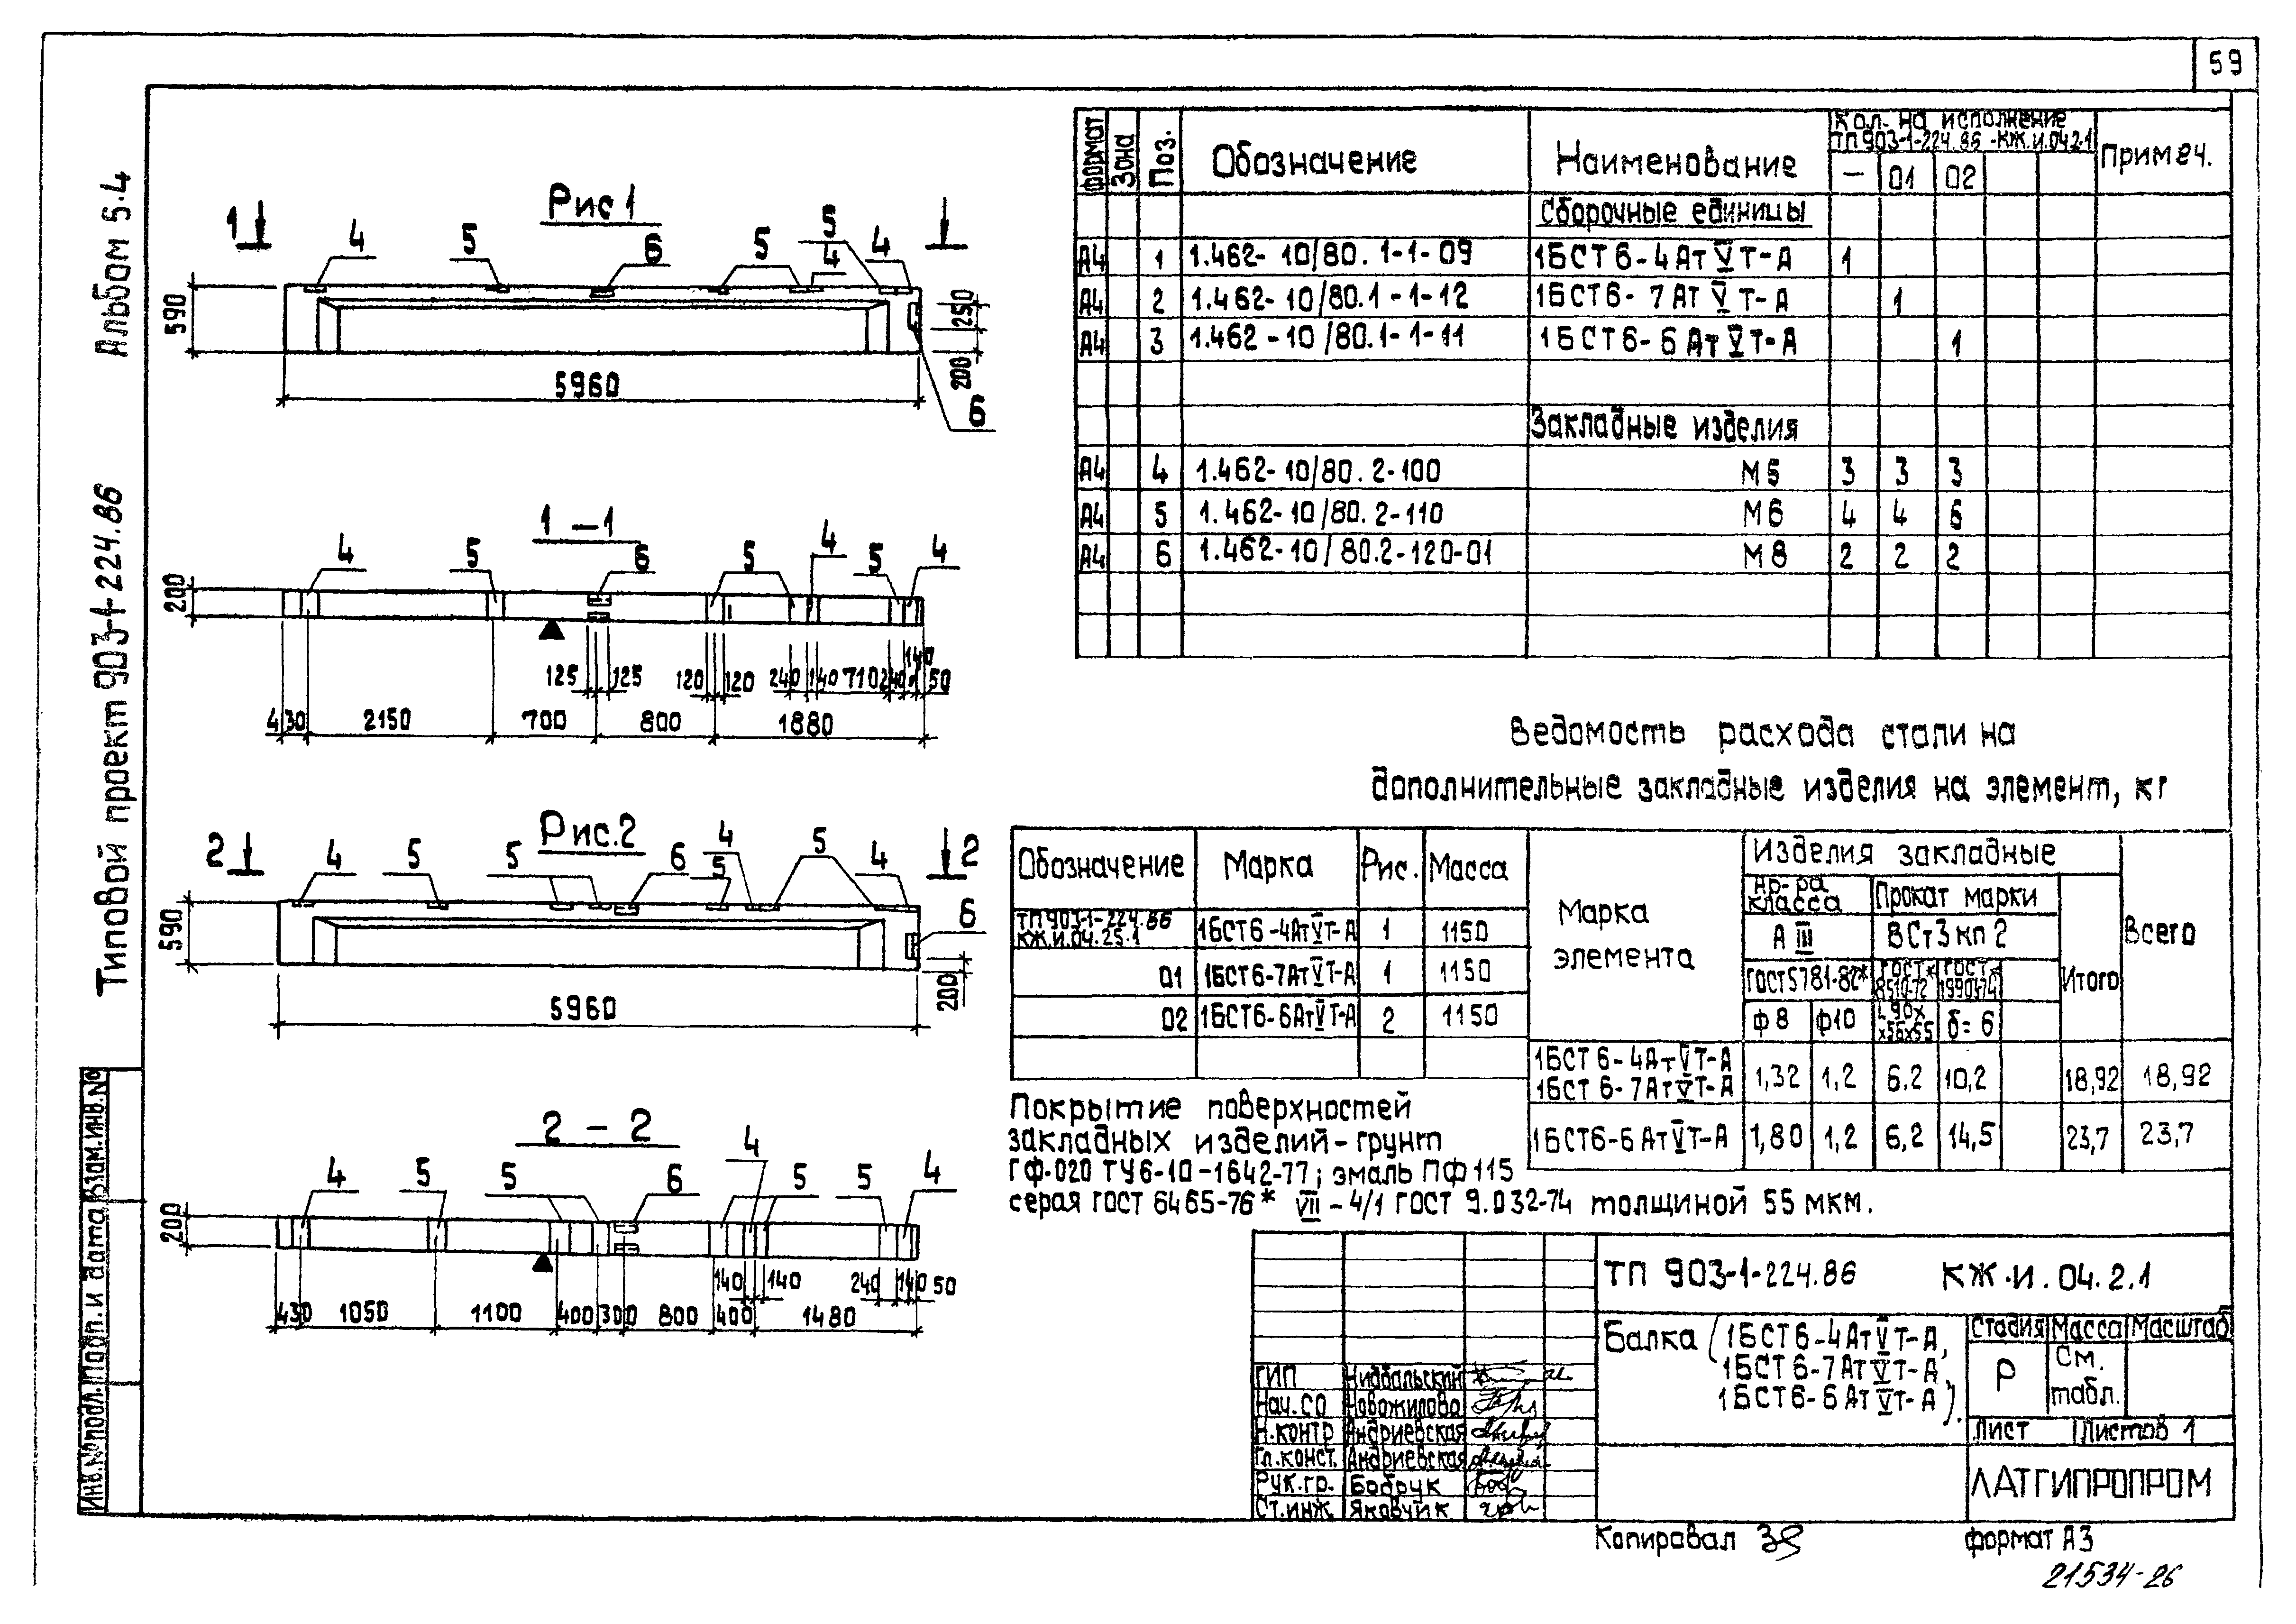 59
Альбом 5.4
Типовой проект 903-1-224.86
Инв.№подл. Подп. и дата Взам.инв.№
Рис 1
1
4 5 6 5 5 4 4
590
250
200
5960
6
1-1
4 5 6 5 4 5 4
200
125 125 120 120 240 140 710 240 140 50
430 2150 700 800 1880
Рис.2
2 2
4 5 5 6 5 4 5 4
590
6
200
5960
2-2
4 5 5 6 5 4 5 5 4
200
140 140 240 140 50
430 1050 1100 400 300 800 400 1480
Формат Зона Поз. Обозначение Наименование Кол. на исполнение ТП 903-1-224.86-КЖ.И.04.2.1 Примеч.
— 01 02
Сборочные единицы
А4 1 1.462-10/80.1-1-09 1БСТ6-4АтVТ-А 1
А4 2 1.462-10/80.1-1-12 1БСТ6-7АтVТ-А 1
А4 3 1.462-10/80.1-1-11 1БСТ6-6АтVТ-А 1
Закладные изделия
А4 4 1.462-10/80.2-100 М5 3 3 3
А4 5 1.462-10/80.2-110 М6 4 4 6
А4 6 1.462-10/80.2-120-01 М8 2 2 2
Ведомость расхода стали на
дополнительные закладные изделия на элемент, кг
Обозначение Марка Рис. Масса
ТП 903-1-224.86 КЖ.И.04.25.1 1БСТ6-4АтVТ-А 1 1150
01 1БСТ6-7АтVТ-А 1 1150
02 1БСТ6-6АтVТ-А 2 1150
Марка элемента
Изделия закладные
Всего
Ар-ра класса
Прокат марки
А III
ВСт3кп2
Итого
ГОСТ5781-82* ГОСТ* 8510-72 ГОСТ* 19903-74
Ф8 Ф10 L90х х56х55 δ=6
1БСТ6-4АтVТ-А
1БСТ6-7АтVТ-А 1,32 1,2 6.2 10,2 18,92 18,92
1БСТ6-6АтVТ-А 1,80 1,2 6,2 14,5 23,7 23,7
Покрытие поверхностей
закладных изделий-грунт
ГФ-020 ТУ6-10-1642-77; эмаль ПФ115
серая ГОСТ 6465-76* VII-4/1 ГОСТ 9.032-74 толщиной 55 мкм.
ТП 903-1-224.86 КЖ.И.04.2.1
Балка (1БСТ6-4АтVТ-А,
1БСТ6-7АтVТ-А,
1БСТ6-6АтVТ-А).
Стадия Масса Масштаб
Р См. табл.
Лист Листов 1
ЛАТГИПРОПРОМ
ГИП Нидбальский
Нач.СО Новожилова
Н.контр Андриевская
Гл.конст. Андриевская
Рук.гр. Бобрук
Ст.инж. Яковчик
Копировал
формат А3
21534-26